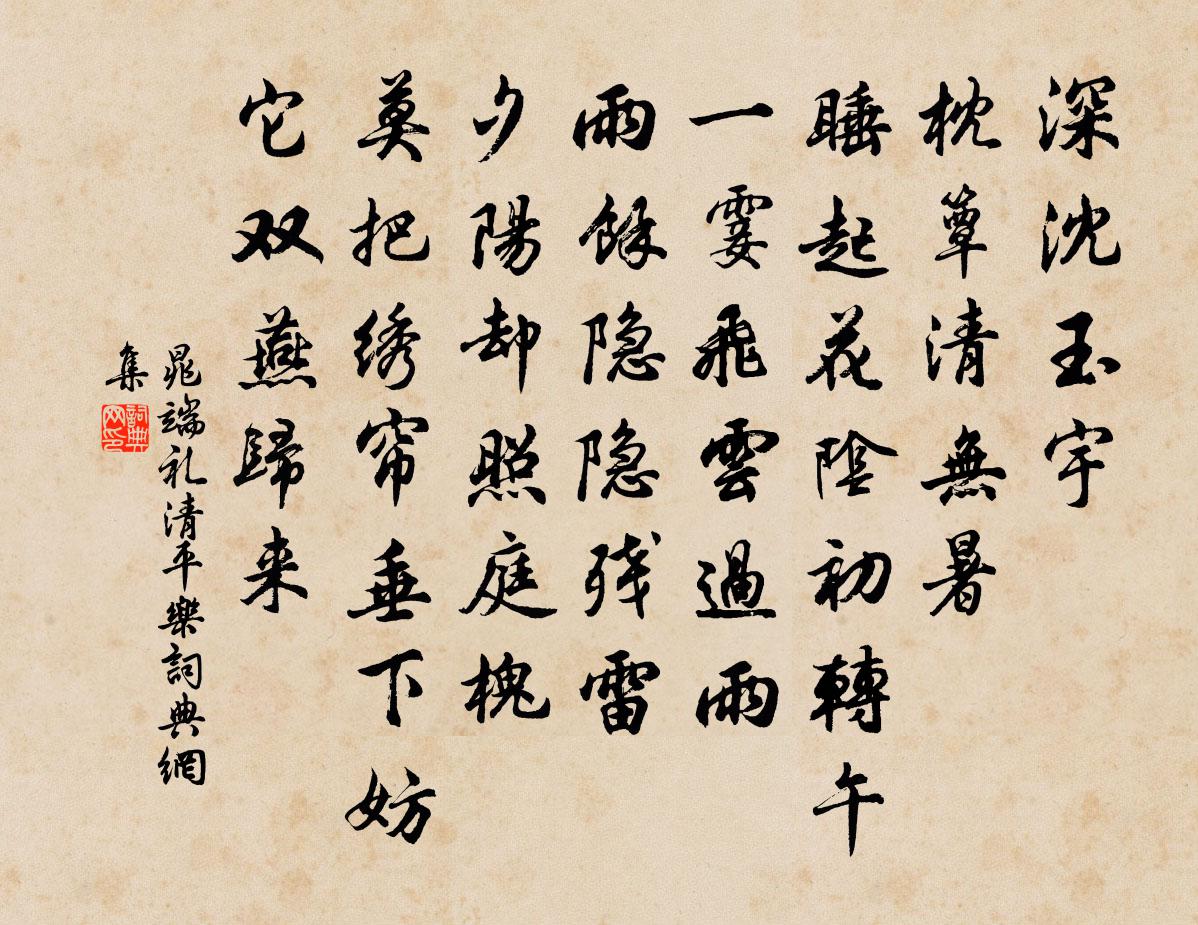 深沈玉宇
枕簟清無暑
睡起花陰初轉午
一霎飛雲過雨
雨餘隐隐残雷
夕陽却照庭槐
莫把绣帘垂下妨
它双燕歸来
晁端礼清平樂詞典網
集
詞典网印